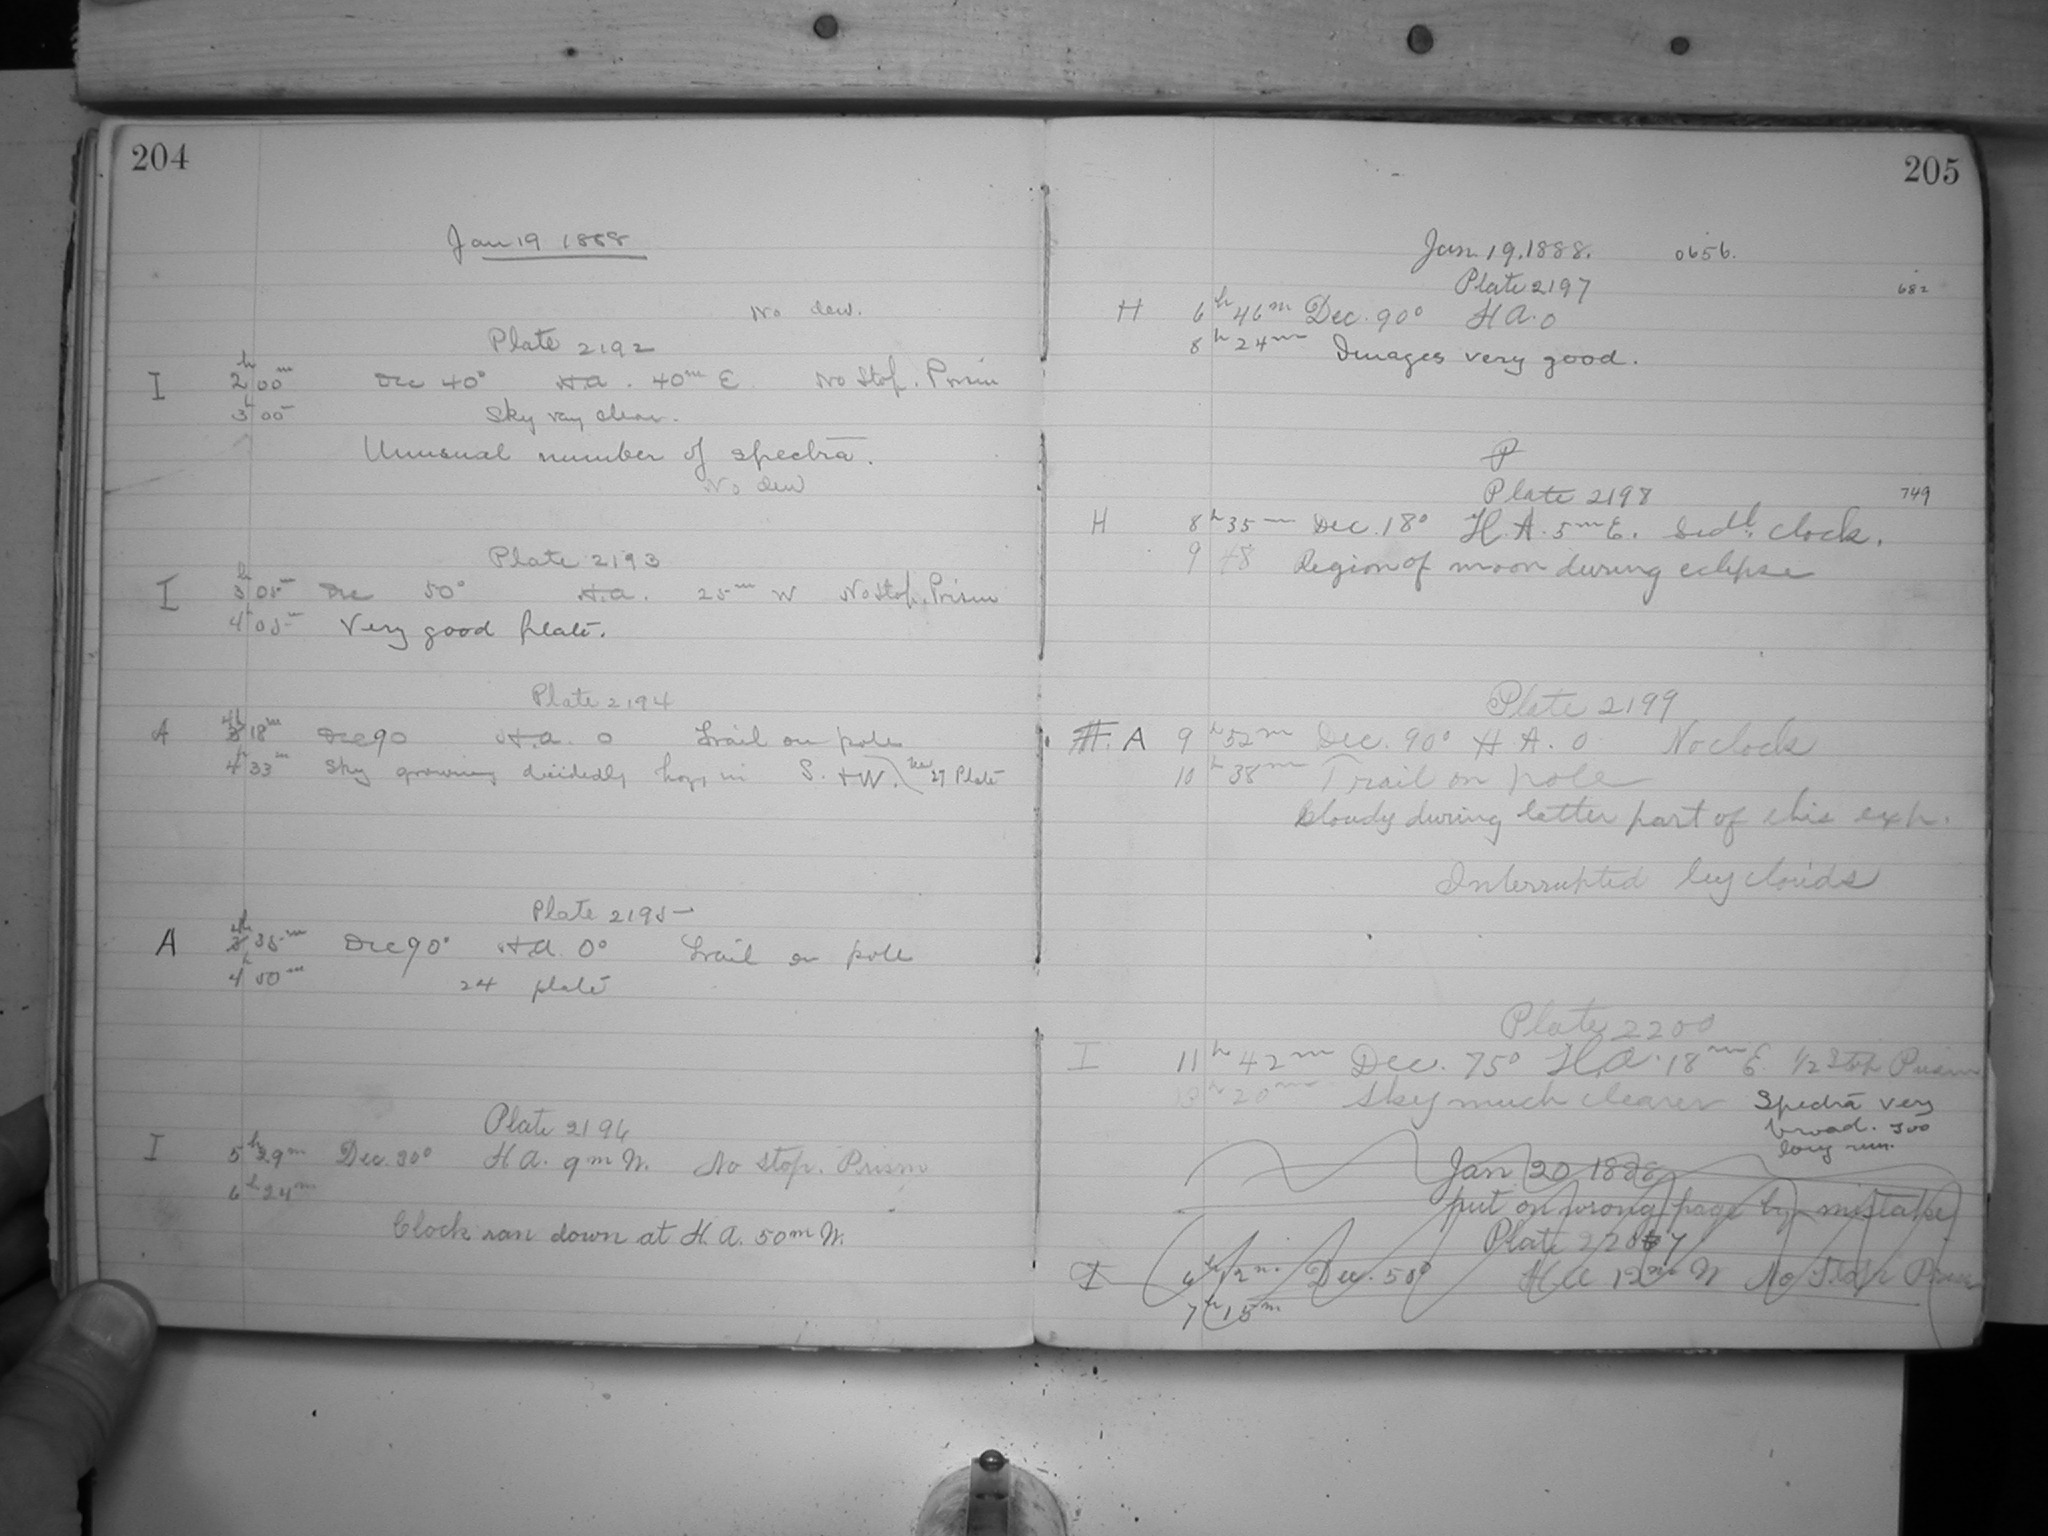 204
Jan 19 1888
No dew.
Plate 2192
I 2h 00m Dec 40° H.a. 40m E. No Stop. Prism
3h 00m Sky very clear.
Unusual number of spectra.
No dew
Plate 2193
I 3h 05m Dec 50° H.a. 25m W No Stop. Prism
4h 05m Very good plate.
Plate 2194
A 4h 18m Dec 90 H.a. 0 Trail on pole
4h 33m Sky growing decidedly hazy in S. + W. 27 Plate
Plate 2195
A 4h 35m Dec 90° H.a. 0° Trail on pole
4h 50m 24 plate
Plate 2196
I 5h 29m Dec. 30° H.A. 9m W. No Stop. Prism
6h 24m
Clock ran down at H.A. 50m W.
205
Jan. 19, 1888. 0656.
Plate 2197 682
H 6h 46m Dec. 90° H.A. 0
8h 24m Images very good.
P
Plate 2198 749
H 8h 35m Dec. 18° H.A. 5m E. Sidl. clock.
9 48 Region of moon during eclipse
Plate 2199
H. A 9h 52m Dec. 90° H.A. 0 No clock
10h 38m Trail on pole
Cloudy during latter part of this exp.
Interrupted by clouds
Plate 2200
I 11h 42m Dec. 75° H.A. 18m E. 1/2 Stop Prism
13h 20m Sky much clearer Spectra very
broad. Too
long run.
Jan 20 1888
put on wrong page by mistake
Plate 2207
I 6h 12m Dec. 50° H.A. 12m W No Stop Prism
7h 15m